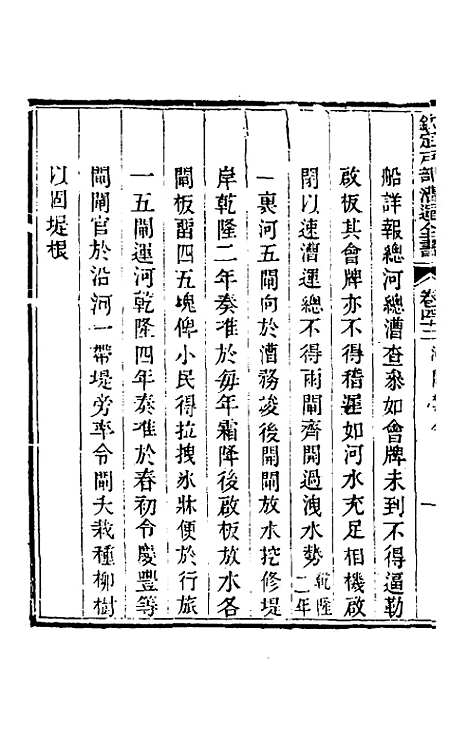 欽定戶部漕運全書 卷四十三
船詳報總河總漕查叅如會牌未到不得逼勒
啟板其會牌亦不得稽遲如河水充足相機啟
閉以速漕運總不得兩閘齊開過洩水勢乾隆二年
一裏河五閘向於漕務竣後開閘放水挖修堤
岸乾隆二年奏准於每年霜降後啟板放水各
閘板留四五塊俾小民得拉拽氷牀便於行旅
一五閘運河乾隆四年奏准於春初令慶豐等
閘閘官於沿河一帶堤旁率令閘夫栽種柳樹
以固堤根